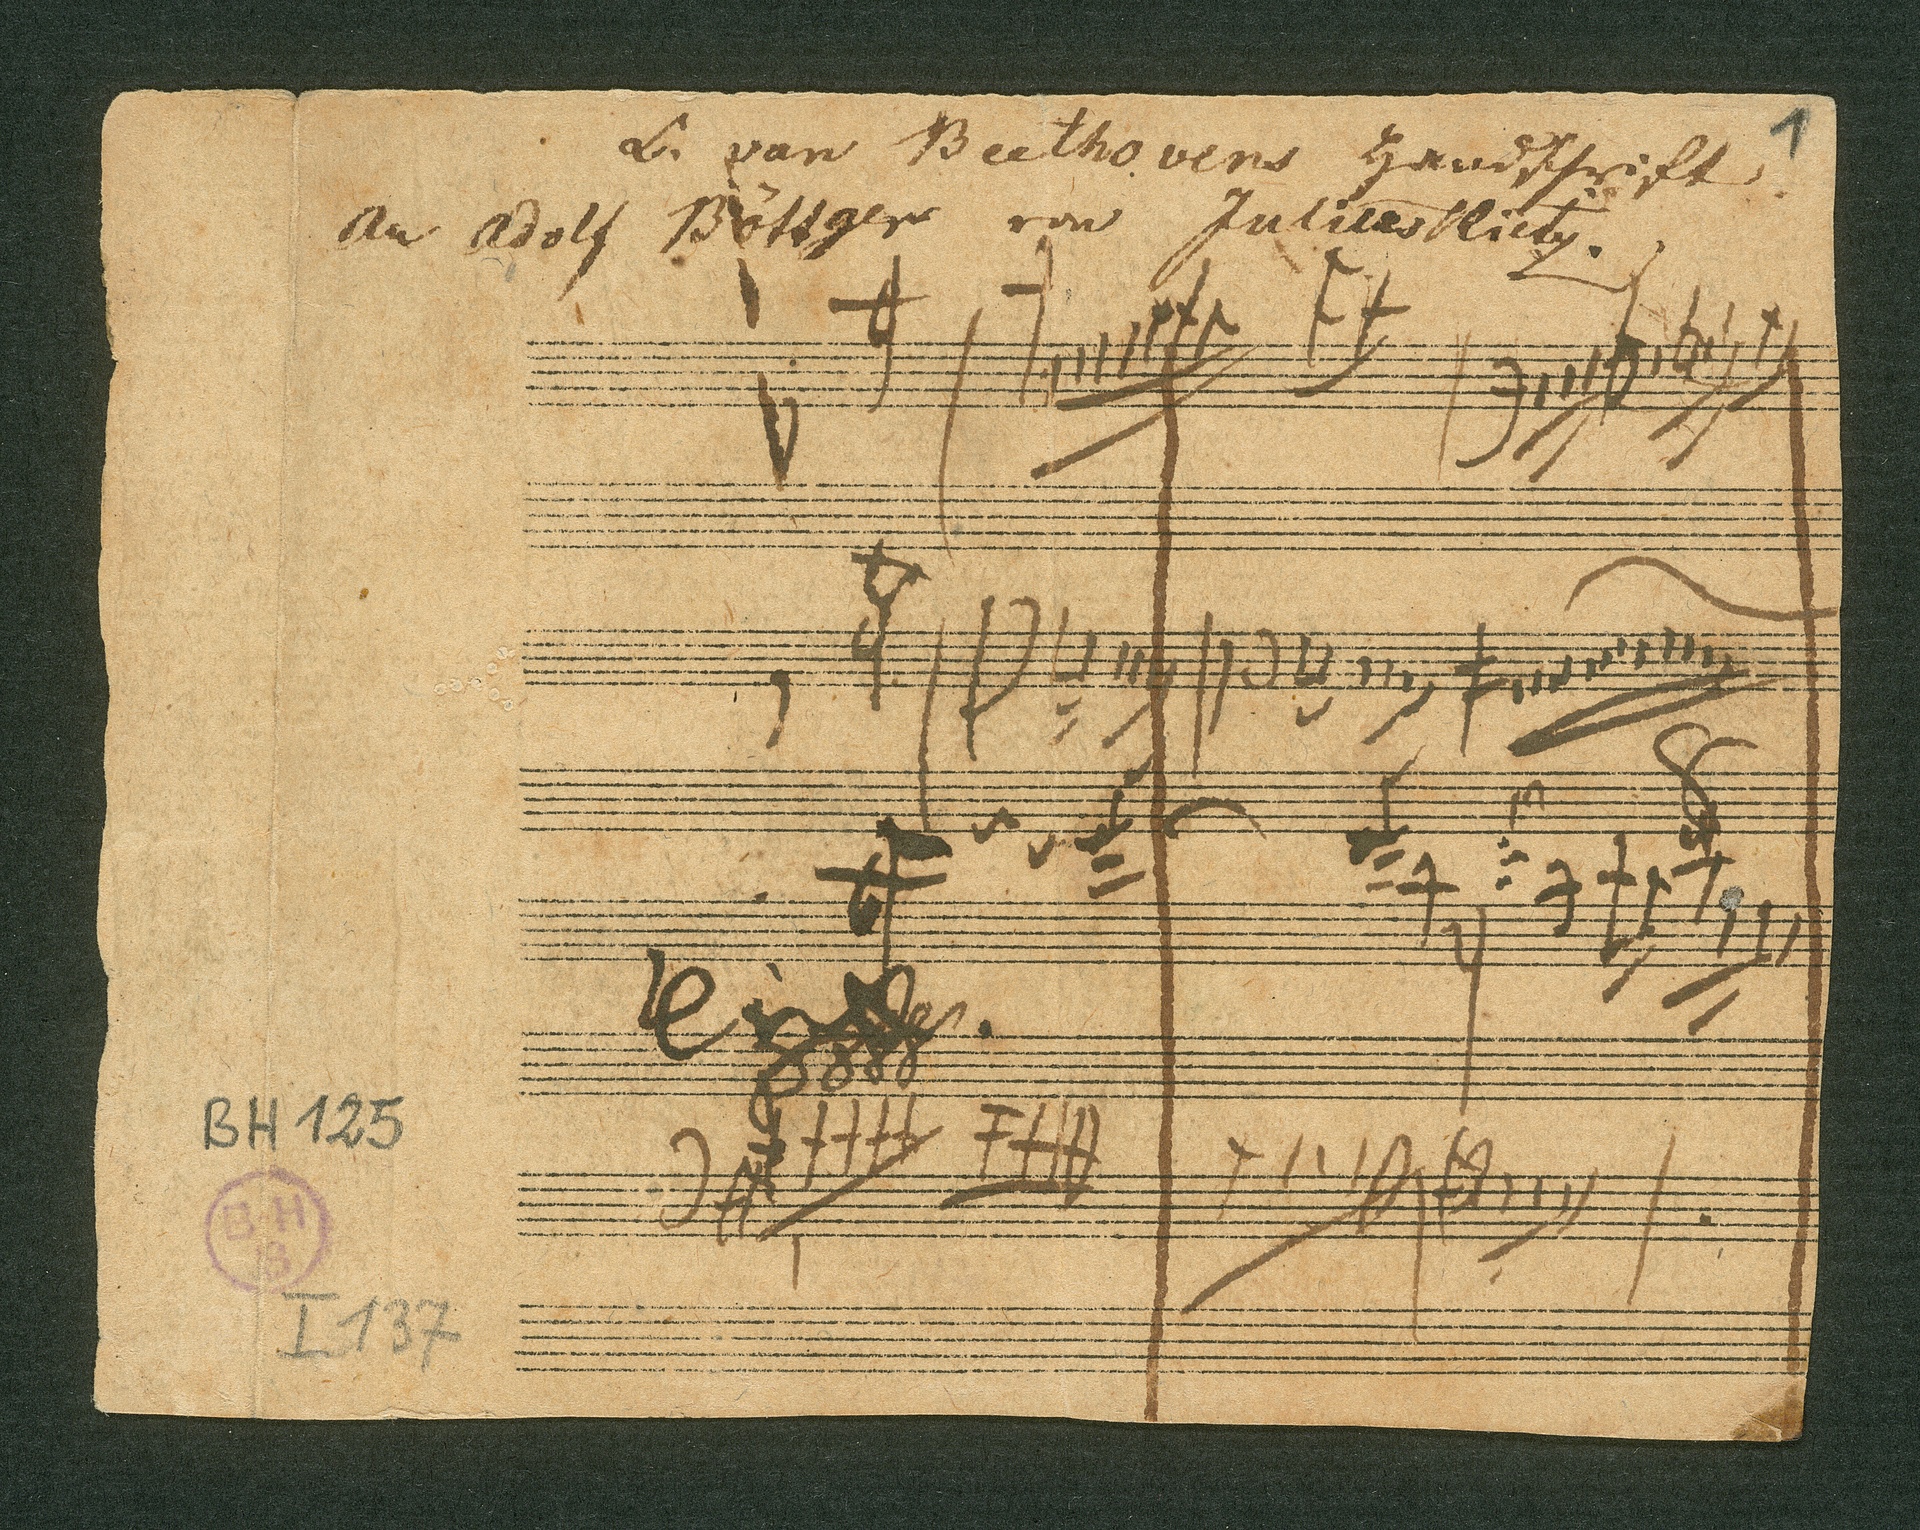 1
L. van Beethovens Handschrift.
An Adolf Böttger von Julius Rietz.
BH 125
BHB
I 137